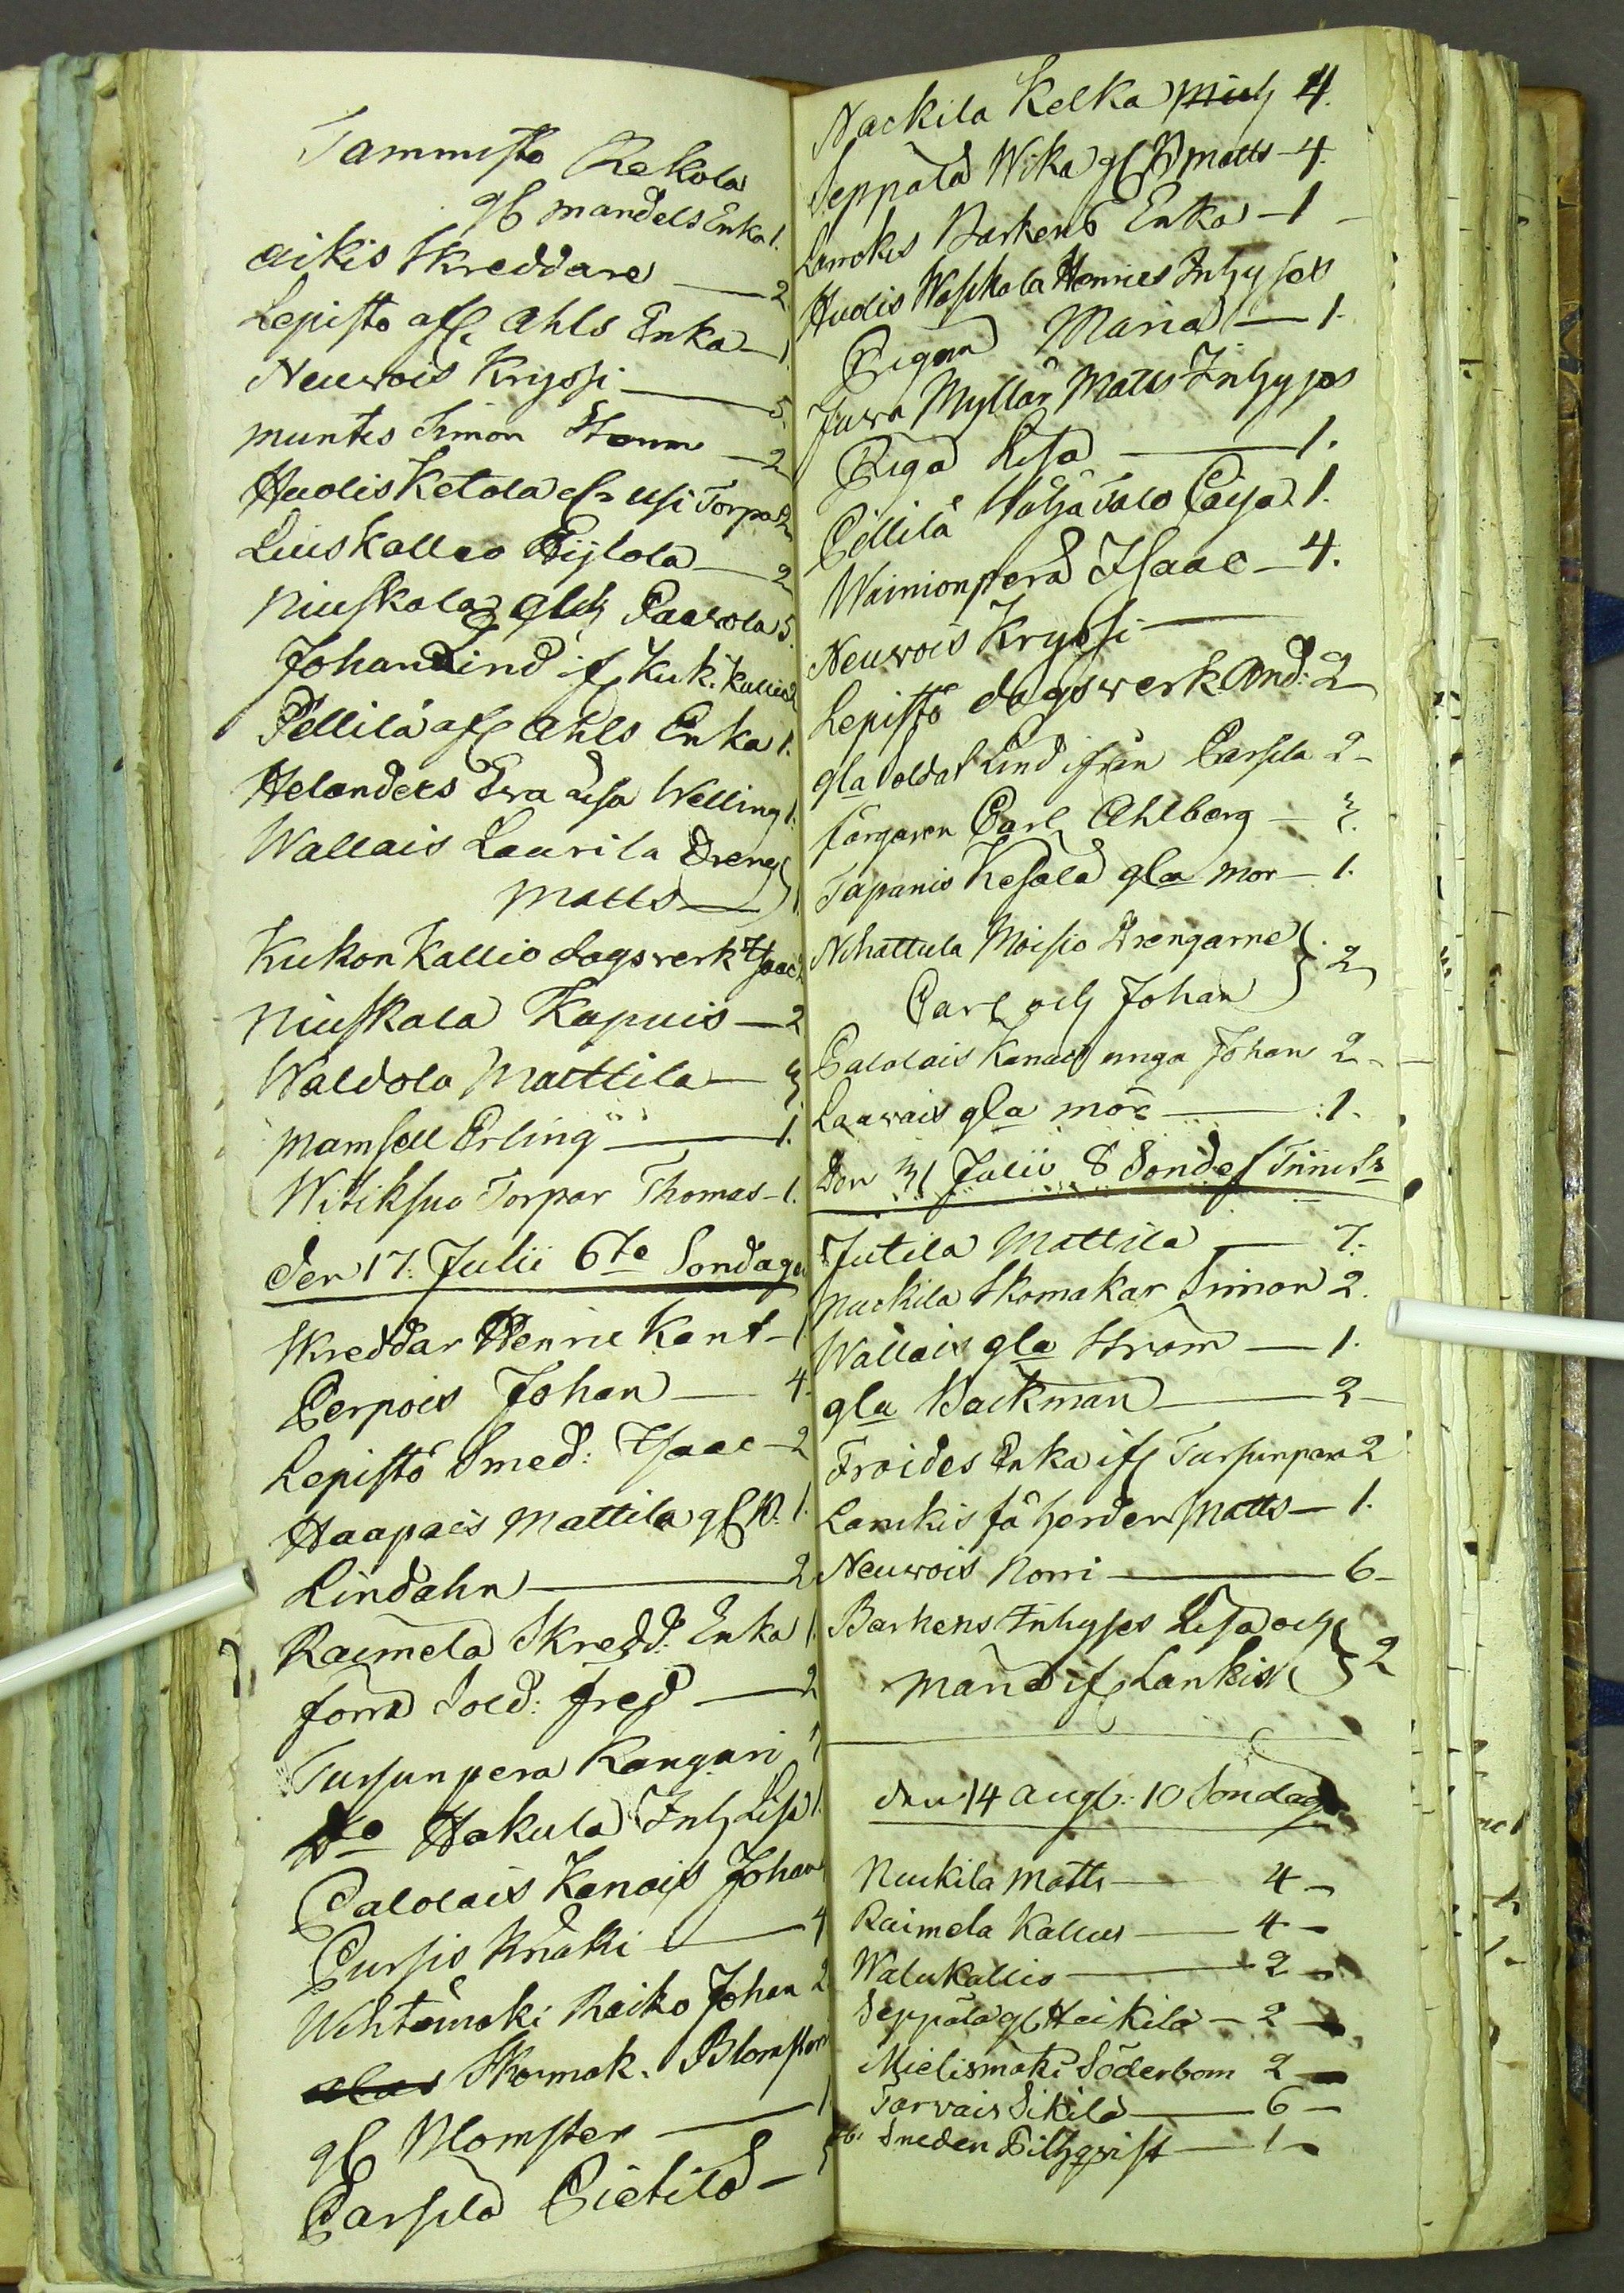 Tammisto Rekola
gl Mandels Enka 1.
aikis Skreddare — 2
Lepisto afl. Ahls Enka — 1
Neuvois Kryssi — 5
muntis Simon — 2
Hudis Ketola Torpa 2
Luiskallio Eijlola — 2
Niuskala Paavola 5.
Johan Lind if Kuk. Kallio 2
Pellilä afl Ahls Enka 1.
Helanders Eva Lisa Welling 1.
Wallais Laurila Dreng
Matts — 1.
Kukon Kallio dagsverk Isaac
Niuskala Kapuis — 2
Waldola Mattila — 3
Mamsell Erling — 1.
Witiksuo Torpar Thomas — 1.
den 17. Julii 6te Sondagen
Skreddar Henric Kant —
Perpois Johan — 4.
Lepistö Smed: Isaac — 2
Haapais Mattila 1.
Lindahn — 2
Raimela Skredd: Enka 1.
forra Sold: fred — 2
Tursunpera Kangari 4
Do Hakula Inh Lisa 1.
Palolais Kanois Johan
Pursis Knaki — 4
Wihtämäki Raiko Johan 2
Skomak. Blomster
gl Blomster — 1
Parsila Pietilä —
Nackila Kelka 4.
Seppälä Wika Matts — 4.
Lanckis Barkens Enka — 1 —
Hudis Waschala Henrics Inhyses
Pigan Maria — 1.
Juva Myllär Matts Inhyses
Piga Lisa — 1.
Pellilä Wähä Talo Caisa 1.
Wainionpera Isaac — 4.
Neuvois Kryssi —
Lepistö dagsverk And: 2
gla Soldat Lind ifrån Parsila 2 —
färgaren Carl Ahlberg — 3.
Tapanis Kesälä gla mor — 1.
Nihattula Moisio Drengarne
Carl och Johan } 2
Palolais Kanais unga Johan 2 —
Laavais gla mor — 1.
Den 31 Julii 8 Sondef Trinits
Jutila Mattila — 7.
Nuckila Skomakar Simon 2.
Wallais gla Strom — 1.
gla Backman — 2 —
Froides Enka if Tursunpera 2
Lanckis få herden Matts — 1.
Neuvois Norri — 6 —
Barkens Inhyses Lisa och
Maria if Lankis } 2
den 14 aug: 10 Söndag
Nuckila Matts — 4 —
Raimela Kallus — 4 —
Walukallis — 2 —
Seppälä gl Heikilä — 2 —
Mielismäki Söderbom 2 —
Tarvais Sikilä — 6 —
Smeden — 1 —